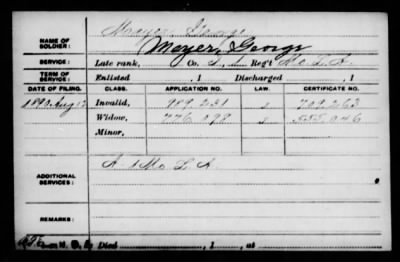 NAME OF SOLDIER: Mayer, George
Meyer, George
SERVICE: Late rank, Co. Reg't Mo. L. A.
TERM OF SERVICE: Enlisted , 1 Discharged , 1
DATE OF FILING. CLASS. APPLICATION NO. LAW. CERTIFICATE NO.
1890 Aug Invalid, 989,231 709,263
Widow, 776,098 555,046
Minor,
ADDITIONAL SERVICES: A 1 Mo L A.
REMARKS:
Died , 1 , at